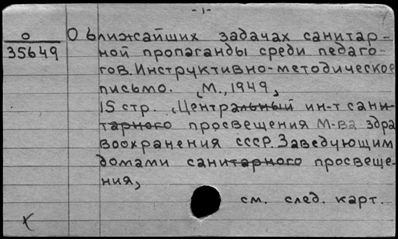 -1-
О 35649
О ближайших задачах санитар-
ной пропаганды среди педаго-
гов. Инструктивно-методическое
письмо. М., 1949,
15 стр. (Центральный ин-т сани-
тарного просвещения М-ва здра
воохранения СССР. Заведующим
домами санитарного просвеще-
ния,
см. след. карт.